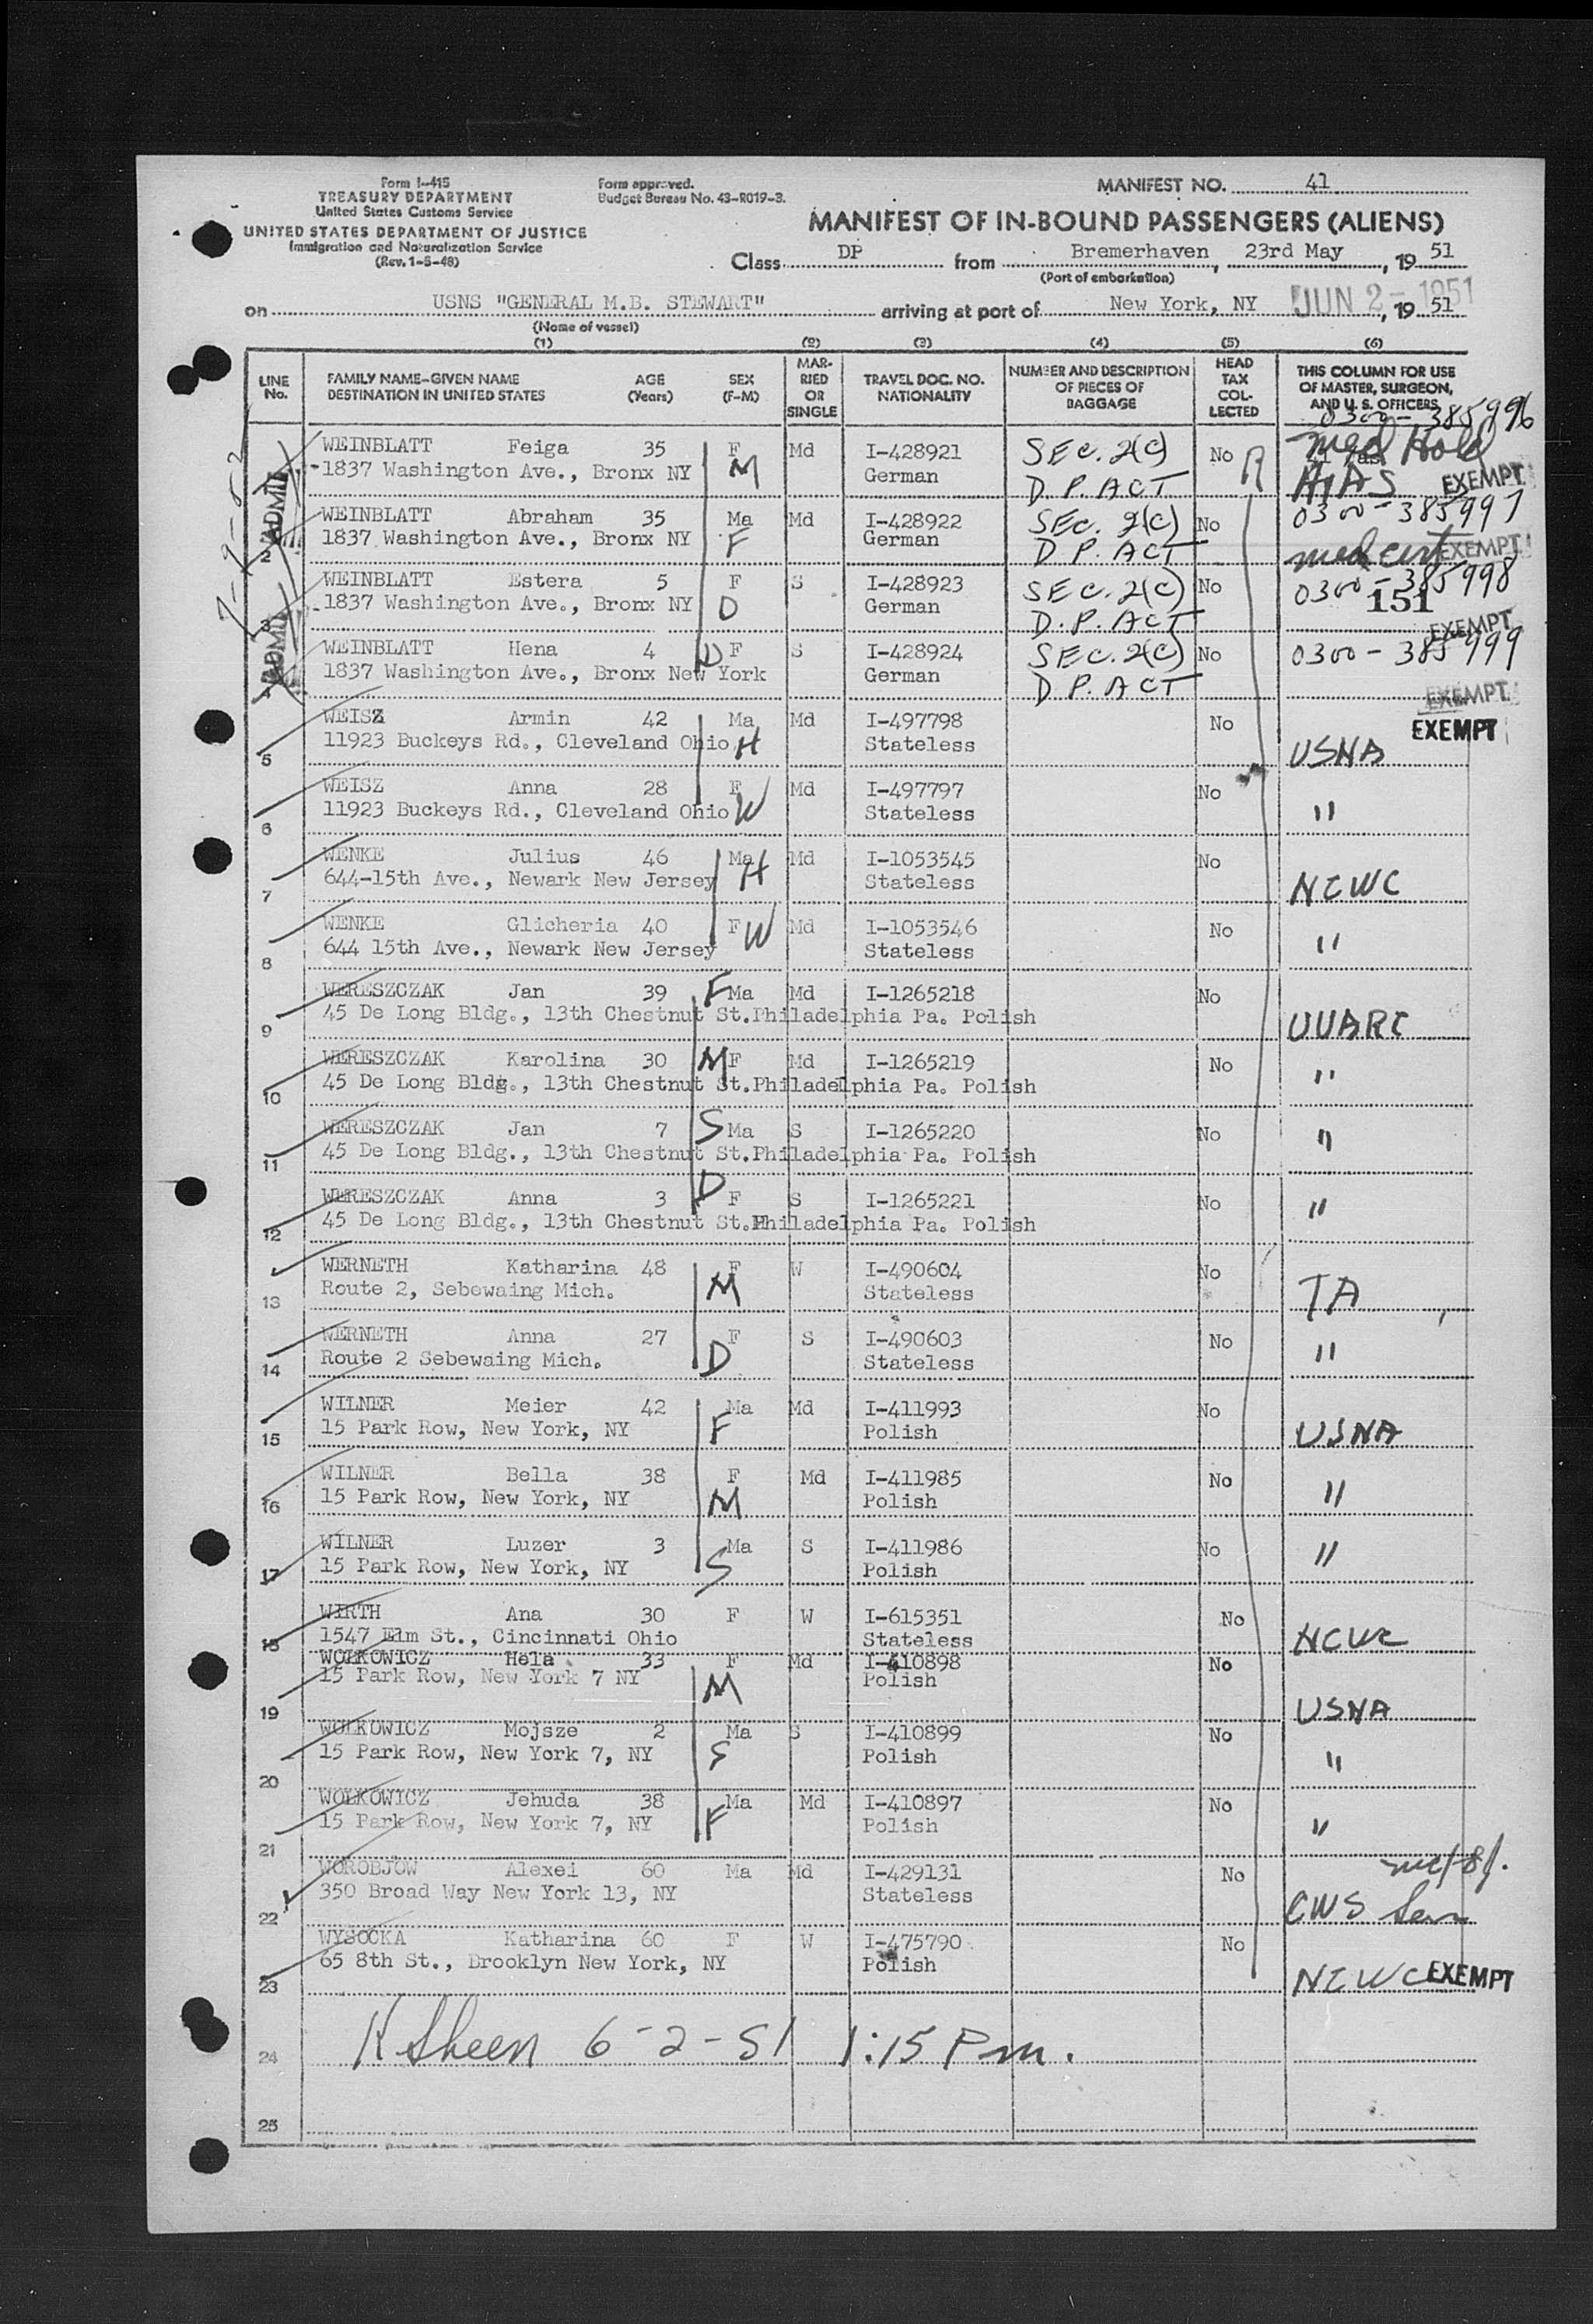 Form I-415
TREASURY DEPARTMENT
United States Customs Service
UNITED STATES DEPARTMENT OF JUSTICE
Immigration and Naturalization Service
(Rev. 1-5-48)
Form approved.
Budget Bureau No. 43-R019-3.
MANIFEST NO. 41
MANIFEST OF IN-BOUND PASSENGERS (ALIENS)
Class DP from Bremerhaven, 23rd May, 19 51
(Port of embarkation)
on USNS "GENERAL M.B. STEWART" arriving at port of New York, NY JUN 2-1951, 19 51
(Name of vessel)
(1) (2) (3) (4) (5) (6)
LINE No. FAMILY NAME-GIVEN NAME DESTINATION IN UNITED STATES AGE (Years) SEX (F-M) MARRIED OR SINGLE TRAVEL DOC. NO. NATIONALITY NUMBER AND DESCRIPTION OF PIECES OF BAGGAGE HEAD TAX COLLECTED THIS COLUMN FOR USE OF MASTER, SURGEON, AND U. S. OFFICERS
0300-385996
WEINBLATT Feiga 35 F Md I-428921 SEC. 2(C) No Med Hold
1837 Washington Ave., Bronx NY M German D.P. ACT HIAS EXEMPT
ADMIT
WEINBLATT Abraham 35 Ma Md I-428922 SEC. 2(C) No 0300-385997
2 1837 Washington Ave., Bronx NY F German D.P. ACT med cert EXEMPT
WEINBLATT Estera 5 F S I-428923 SEC. 2(C) No 0300-385998
3 1837 Washington Ave., Bronx NY D German D.P. ACT 151 EXEMPT
ADMIT
WEINBLATT Hena 4 D F S I-428924 SEC. 2(C) No 0300-385999
4 1837 Washington Ave., Bronx New York German D.P. ACT EXEMPT
WEISZ Armin 42 Ma Md I-497798 No EXEMPT
5 11923 Buckeys Rd., Cleveland Ohio H Stateless USNA
WEISZ Anna 28 F Md I-497797 No
6 11923 Buckeys Rd., Cleveland Ohio W Stateless "
WENKE Julius 46 Ma H Md I-1053545 No
7 644-15th Ave., Newark New Jersey Stateless NCWC
WENKE Glicheria 40 F W Md I-1053546 No
8 644 15th Ave., Newark New Jersey Stateless "
WERESZCZAK Jan 39 F Ma Md I-1265218 No
9 45 De Long Bldg., 13th Chestnut St.Philadelphia Pa. Polish UUARC
WERESZCZAK Karolina 30 M F Md I-1265219 No
10 45 De Long Bldg., 13th Chestnut St.Philadelphia Pa. Polish "
WERESZCZAK Jan 7 S Ma S I-1265220 No
11 45 De Long Bldg., 13th Chestnut St.Philadelphia Pa. Polish "
WERESZCZAK Anna 3 D F S I-1265221 No
12 45 De Long Bldg., 13th Chestnut St.Philadelphia Pa. Polish "
WERNETH Katharina 48 F W I-490604 No
13 Route 2, Sebewaing Mich. M Stateless TA
WERNETH Anna 27 F S I-490603 No
14 Route 2 Sebewaing Mich. D Stateless "
WILNER Meier 42 Ma Md I-411993 No
15 15 Park Row, New York, NY F Polish USNA
WILNER Bella 38 F Md I-411985 No
16 15 Park Row, New York, NY M Polish "
WILNER Luzer 3 Ma S I-411986 No
17 15 Park Row, New York, NY S Polish "
WIRTH Ana 30 F W I-615351 No
18 1547 Elm St., Cincinnati Ohio Stateless NCWC
WOLKOWICZ Hela 33 F Md I-410898 No
19 15 Park Row, New York 7 NY M Polish USNA
WOLKOWICZ Mojsze 2 Ma S I-410899 No
20 15 Park Row, New York 7, NY S Polish "
WOLKOWICZ Jehuda 38 Ma Md I-410897 No
21 15 Park Row, New York 7, NY F Polish "
WOROBJOW Alexei 60 Ma Md I-429131 No
22 350 Broad Way New York 13, NY Stateless CWS
WYSOCKA Katharina 60 F W I-475790 No
23 65 8th St., Brooklyn New York, NY Polish NCWC EXEMPT
24 K Sheen 6-2-51 1:15 Pm.
25